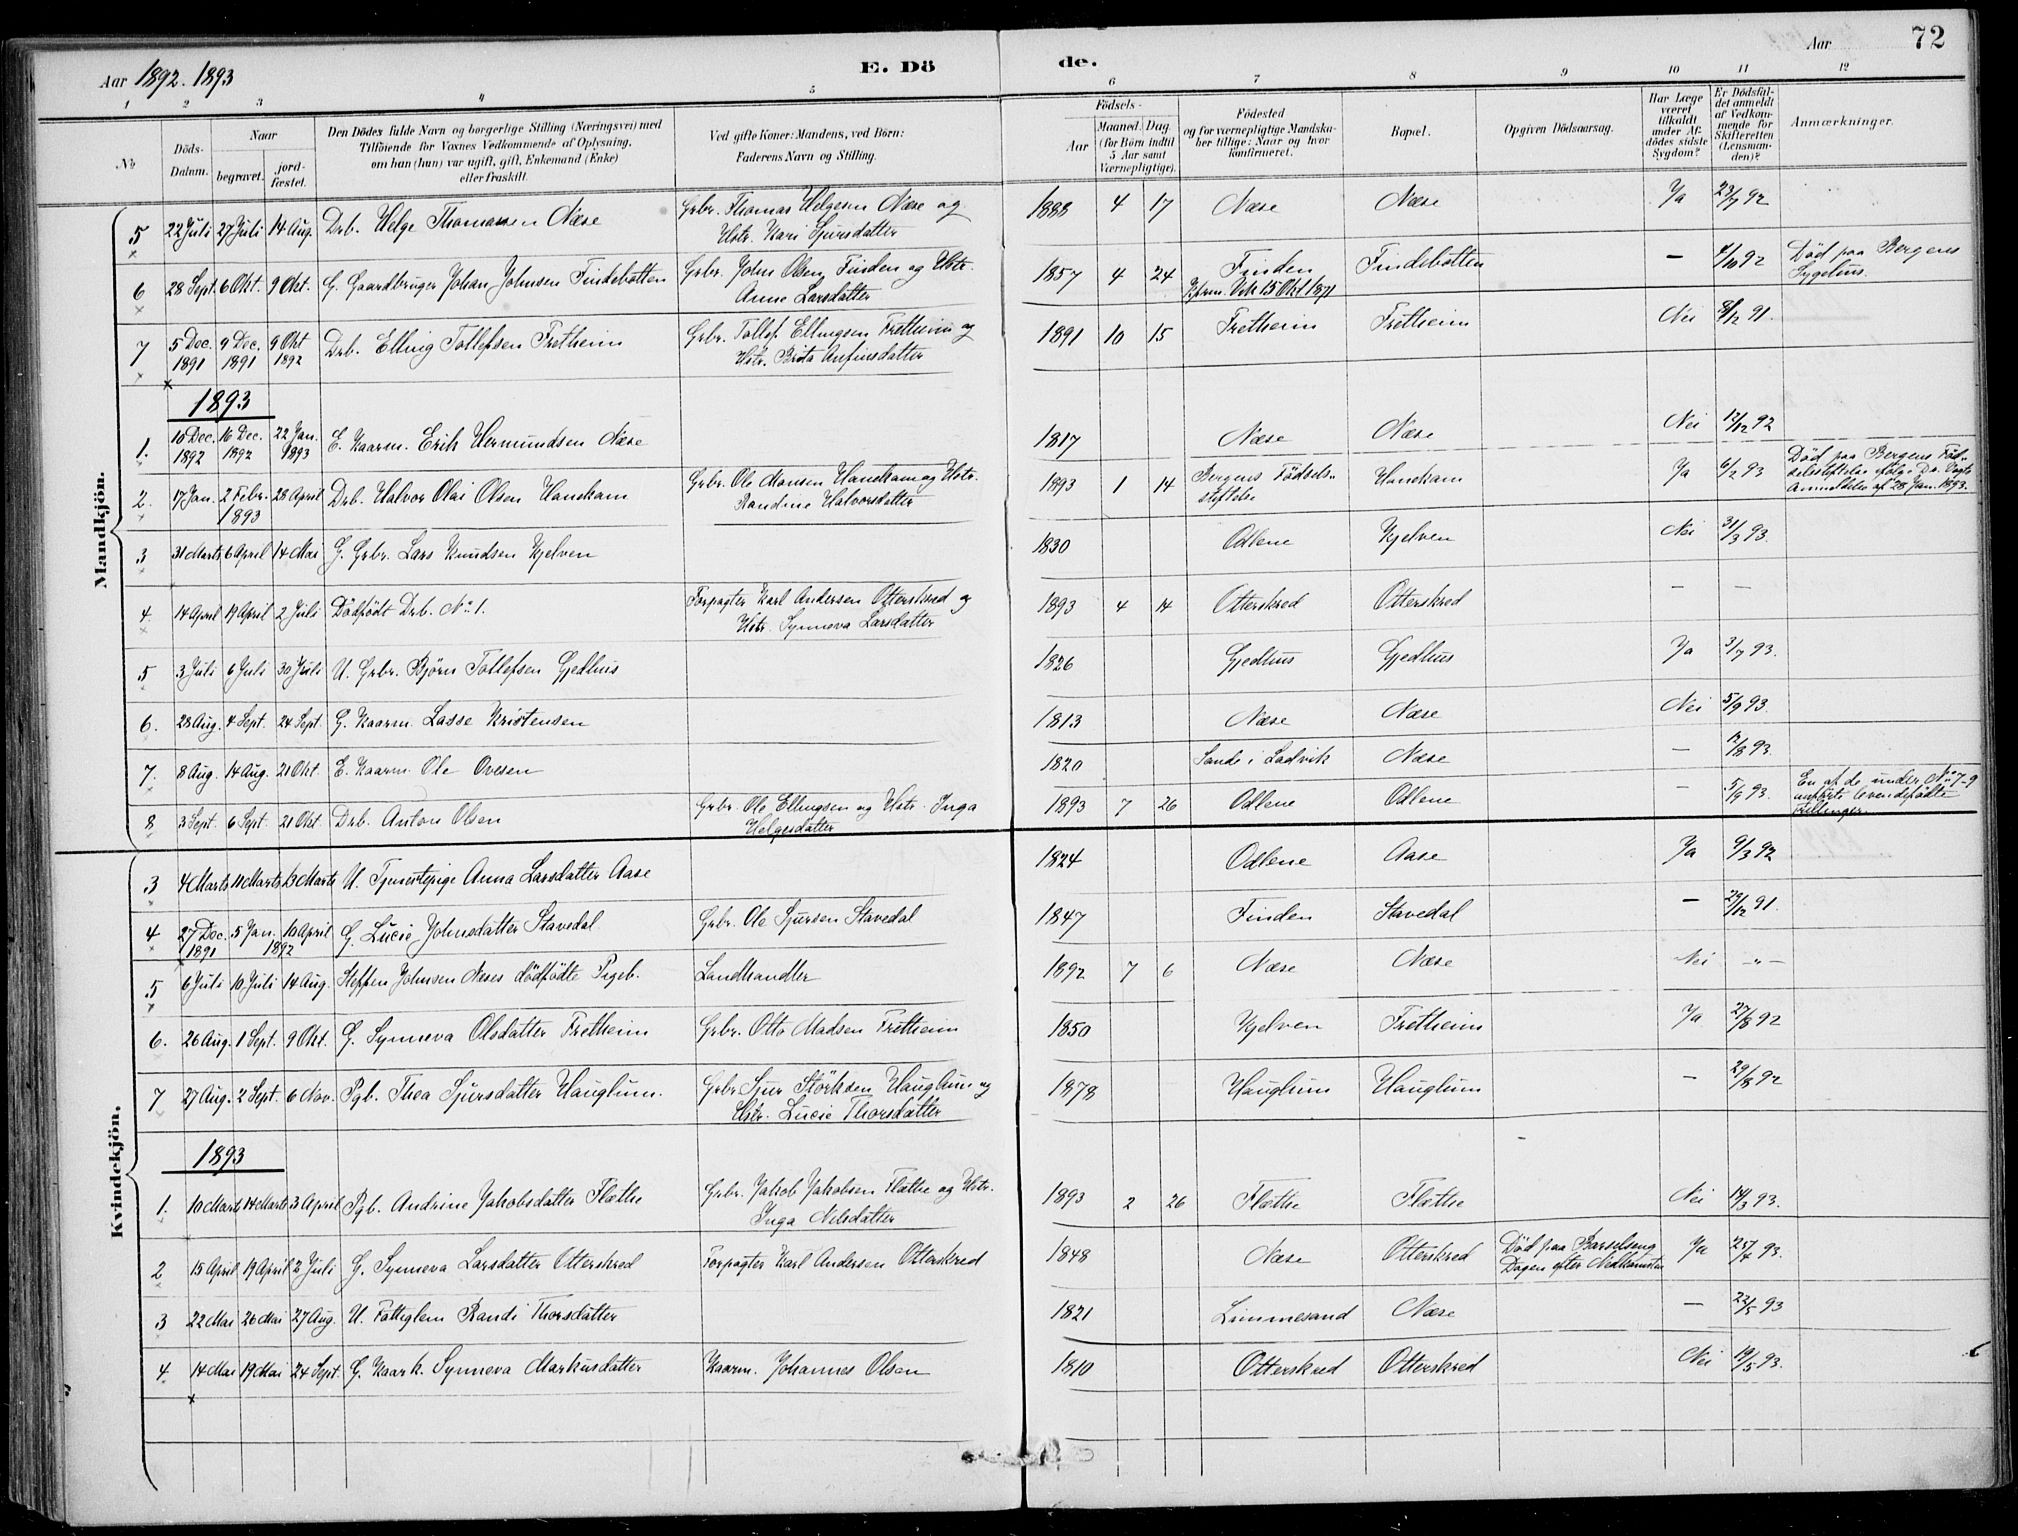 Aar 1892. 1893
E. Dö
de.
Aar
72
1 2 3 4 5 6 7 8 9 10 11 12
No
Döds-Datum.
Naar
begravet.
jord-fæstet.
Den Dödes fulde Navn og borgerlige Stilling (Næringsvei) med
Tilföiende for Voxnes Vedkommende af Oplysning,
om han (hun) var ugift, gift, Enkemand (Enke)
eller fraskilt.
Ved gifte Koner: Mandens, ved Börn:
Faderens Navn og Stilling.
Födsels-
Aar
Maaned. Dag.
(for Börn indtil
5 Aar samt
Værnepligtige).
Födested
og for værnepligtige Mandska-
ber tillige: Naar og hvor
konfirmeret.
Bopæl.
Opgiven Dödsaarsag.
Har Læge
været
tilkaldt
under Af-
dödes sidste
Sygdom?
Er Dödsfal-
det anmeldt
af Vedkom-
mende for
Skifteretten
(Lensman-
den)?
Anmærkninger.
Mandkjön.
5 22 Juli 27 Juli 14 Aug. Drb. Helge Thomassen Næse Grbr. Thomas Helgesen Næse og 1888 4 17 Næse Næse Ja 23/7 92
Hstr. Kari Sjursdatter
6 28 Sept. 6 Okt. 9 Okt. G. Gaardbruger Johan Johnsen Findebotten Grbr. John Olsen Finden og Hstr. 1857 4 24 Finden Findebotten — 4/10 92 Död paa Bergens
Anne Larsdatter Kfrm. Vik 15 Okt 1871 Sygehus.
7 5 Dec. 9 Dec. 9 Okt Drb. Elling Tollefsen Fretheim Grbr. Tollef Ellingsen Fretheim og 1891 10 15 Fretheim Fretheim Nei 8/12 91.
1891 1891 1892 Hstr. Brita Anfinsdatter
1893
1. 10 Dec. 16 Dec. 22 Jan. E. Kaarm. Erik Hermundsen Næse 1817 Næse Næse Nei 12/12 92
1892 1892 1893
2. 17 Jan. 2 Febr. 23 April Drb. Halvor Olai Olsen Hanekam Grbr. Ole Monsen Hanekam og Hstr. 1893 1 14 Bergens Födsels- Hanekam Ja 6/2 93 Död paa Bergens Föd-
1893 Randine Halvorsdatter stiftelse selsstiftelse ifölge Dr. Vogts
Anmeldelse af 28 Jan. 1893.
3 31 Marts 6 April 14 Mai G. Grbr. Lars Knudsen Kjelven 1830 Odlene Kjelven Nei 31/3 93.
4. 14 April 19 April 2 Juli Dödfödt Drb. No 1. Forpagter Karl Andersen Otterskred og 1893 4 14 Otterskred Otterskred — —
Hstr. Synneva Larsdatter
5 3 Juli 6 Juli 30 Juli U. Grbr. Björn Tollefsen Gjedhus 1826 Gjedhus Gjedhus Ja 3/7 93.
6. 28 Aug. 4 Sept. 24 Sept. G. Kaarm. Lasse Kristensen 1813 Næse Næse Nei 5/9 93.
7. 8 Aug. 14 Aug. 21 Okt. E. Kaarm. Ole Ovesen 1820 Sande i Ladvik Næse — 12/8 93.
8 3 Sept. 6 Sept. 21 Okt. Drb. Anton Olsen Grbr. Ole Ellingsen og Hstr. Inga 1893 7 26 Odlene Odlene — 5/9 93. En af de under No 7-9
Helgesdatter anförte levendefödte
Tvillinger.
Kvindekjön.
3 4 Marts 11 Marts 13 Marts U. Tjenestepige Anna Larsdatter Aase 1824 Odlene Aase Ja 9/3 92
4 27 Dec. 5 Jan. 10 April G. Lucie Johnsdatter Stavedal Grbr. Ole Sjursen Stavedal 1847 Finden Stavedal — 29/12 91.
1891 1892
5 6 Juli 10 Juli 14 Aug. Steffen Johnsen Næses dödfödte Pigeb. Landhandler 1892 7 6 Næse Næse Nei —„—
6. 26 Aug. 1 Sept. 9 Okt. G. Synneva Olsdatter Fretheim Grbr. Otto Madsen Fretheim 1850 Kjelven Fretheim Ja 27/8 92
7 27 Aug. 2 Sept. 6 Nov. Pgb. Thea Sjursdatter Hauglum. Grbr. Sjur Störksen Hauglum og 1878 Hauglum Hauglum — 29/8 92
Hstr. Lucie Thorsdatter
1893
1. 10 Marts 14 Marts 3 April Pgb. Andrine Jakobsdatter Flæthe Grbr. Jakob Jakobsen Flæthe og Hstr. 1893 2 26 Flæthe Flæthe Nei 14/3 93.
Inga Nilsdatter
2 15 April 19 April 2 Juli G. Synneva Larsdatter Otterskred Forpagter Karl Andersen Otterskred 1848 Næse Otterskred Död paa Barselseng Ja 25/4 93.
Dagen efter Nedkomsten
3 22 Mai 26 Mai 27 Aug. U. Fattiglem Randi Thorsdatter 1821 Limmesand Næse — 22/5 93
4. 14 Mai 19 Mai 24 Sept. G. Kaark. Synneva Markusdatter Kaarm. Johannes Olsen 1810 Otterskred Otterskred Nei 19/5 93.